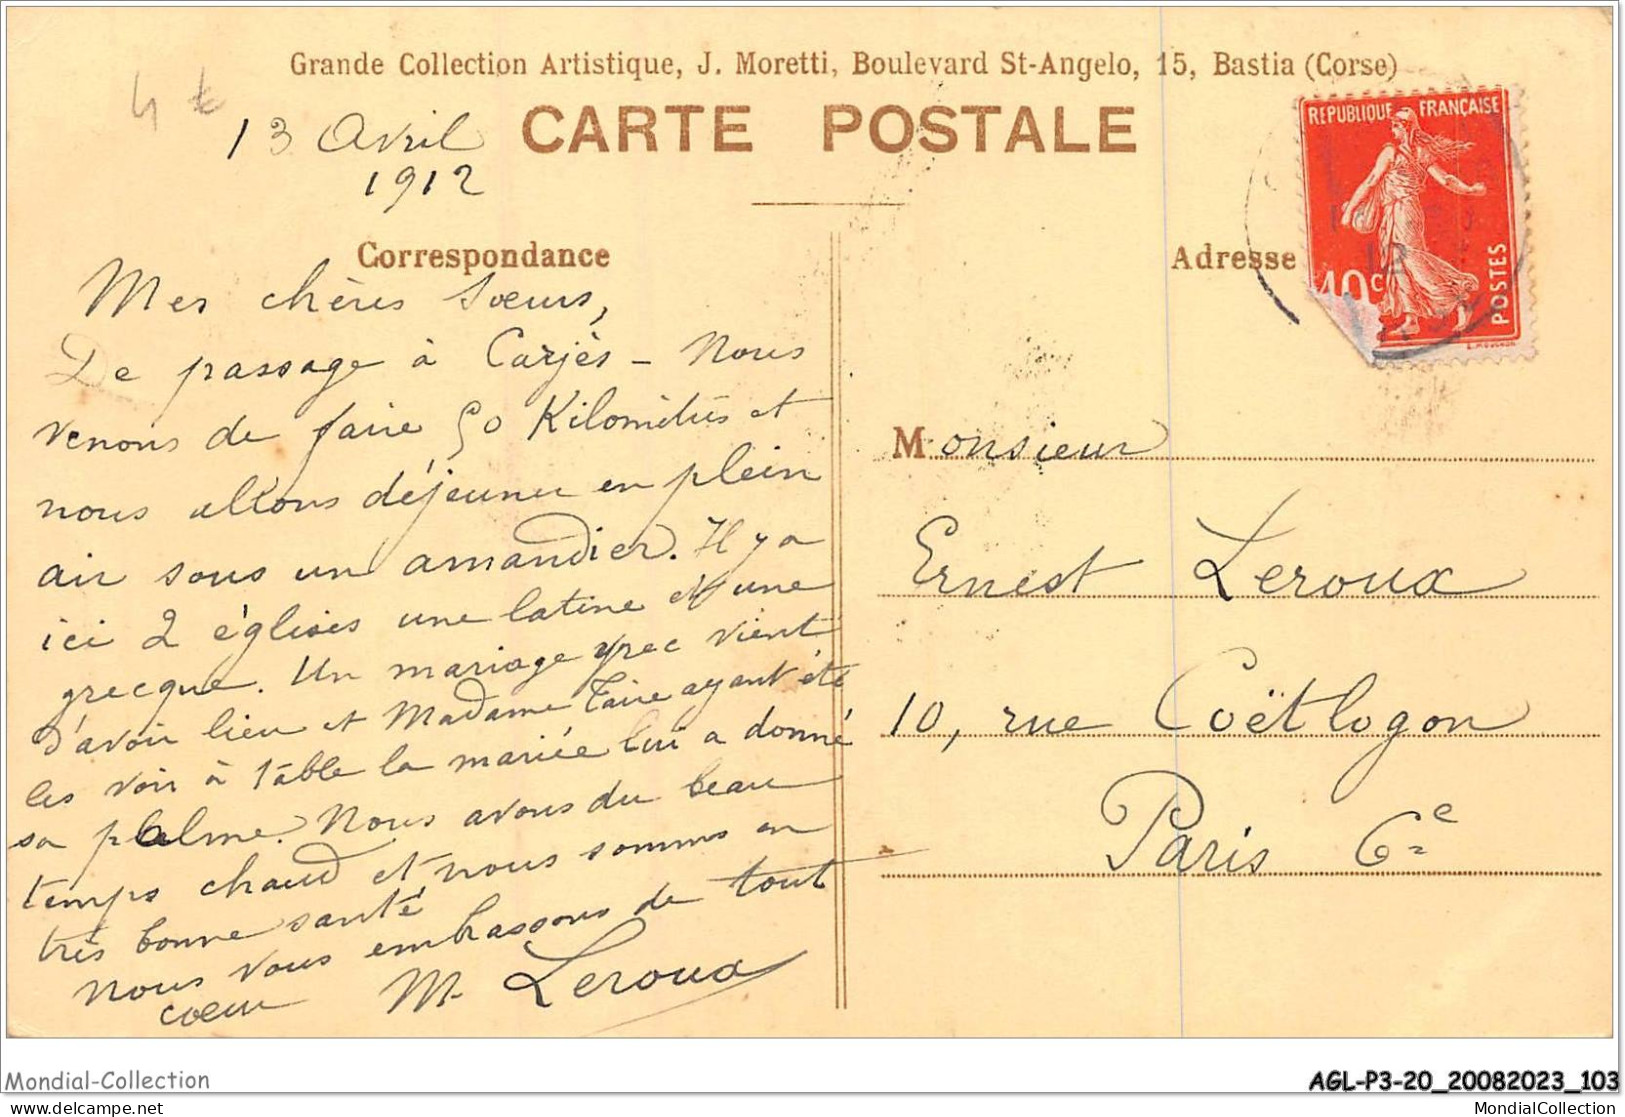 Grande Collection Artistique, J. Moretti, Boulevard St-Angelo, 15, Bastia (Corse)
CARTE POSTALE
4 €
13 Avril
1912
Correspondance
Mes chères Sœurs,
De passage à Carjès - Nous
venons de faire 50 Kilomètres et
nous allons déjeuner en plein
air sous un amandier. Il y a
ici 2 églises une latine et une
grecque. Un mariage grec vient
d'avoir lieu et Madame Taire ayant été
les voir à table la mariée lui a donné
sa palme. Nous avons du beau
temps chaud et nous sommes en
très bonne santé
nous vous embrassons de tout
coeur M. Leroux
Adresse
REPUBLIQUE FRANÇAISE
10c
POSTES
12
Monsieur
Ernest Leroux
10, rue Coëtlogon
Paris 6e
Mondial-Collection
AGL-P3-20_20082023_103
www.delcampe.net
MondialCollection